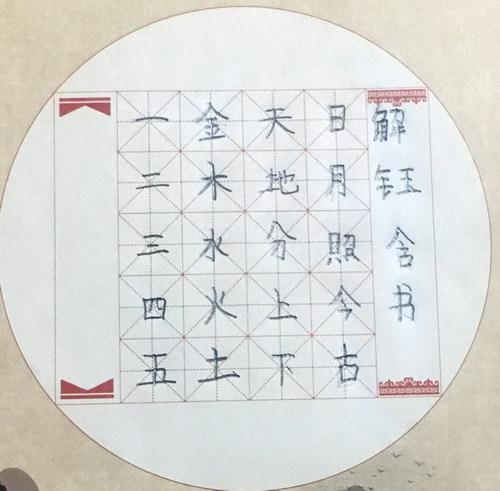 一二三四五
金木水火土
天地分上下
日月照今古
解钰含书